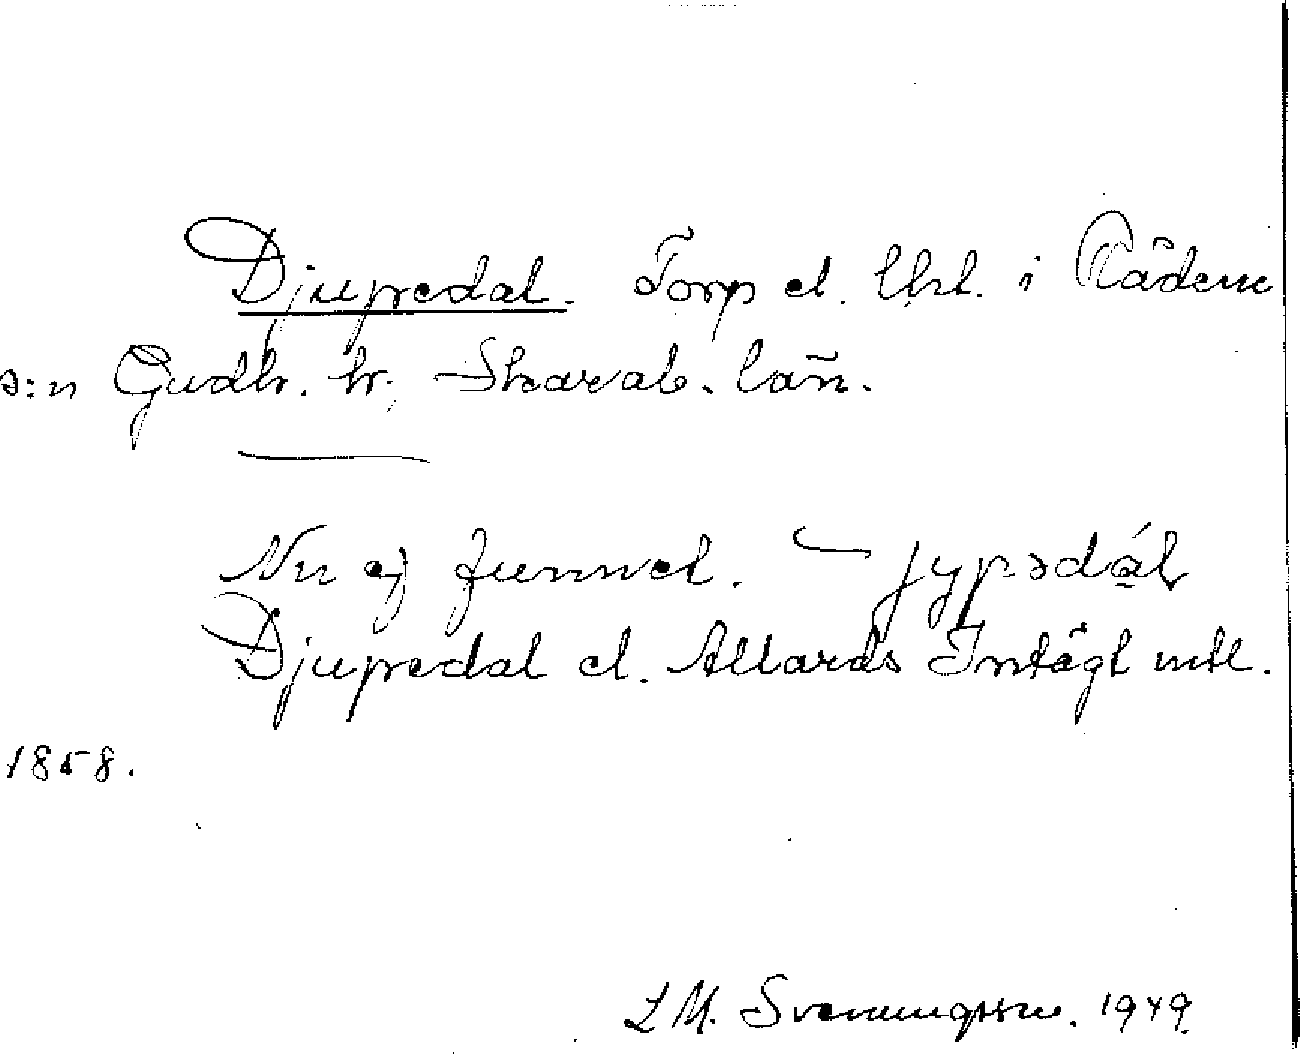 Djupedal. Torp el. lht. i Rådene
s:n Gudh. hr. Skarab. län.
Nu ej funnet. jypədál
Djupedal el. Allards Intägt mtl.
1858.
L M. Svenungsson. 1949